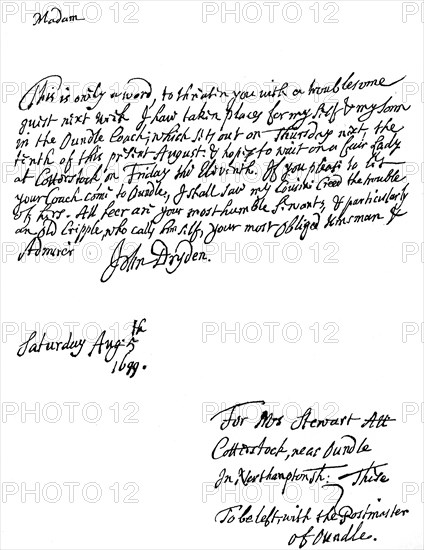 Madam
This is onely a word, to threaten you with a troublesome
guest next week. I have taken places for my self & my son
in the Oundle Coach; which sets out on Thursday next, the
tenth of this present August: & hope to wait on a fair Lady
at Cotterstock on Friday the eleventh. If you please to let
your Coach come to Oundle, I shall save my Cousin Creed the trouble
of hers. All heer are your most humble Servants, & particularly
an old Cripple, who calls him self, your most Obliged Kinsman &
Admirer John Dryden.
Saturday Aug: 5th
1699.
For Mrs Stewart Att
Cotterstock, near Oundle
In Northamptonsh: These
To be left with the Postmaster
of Oundle.
PHOTO 12